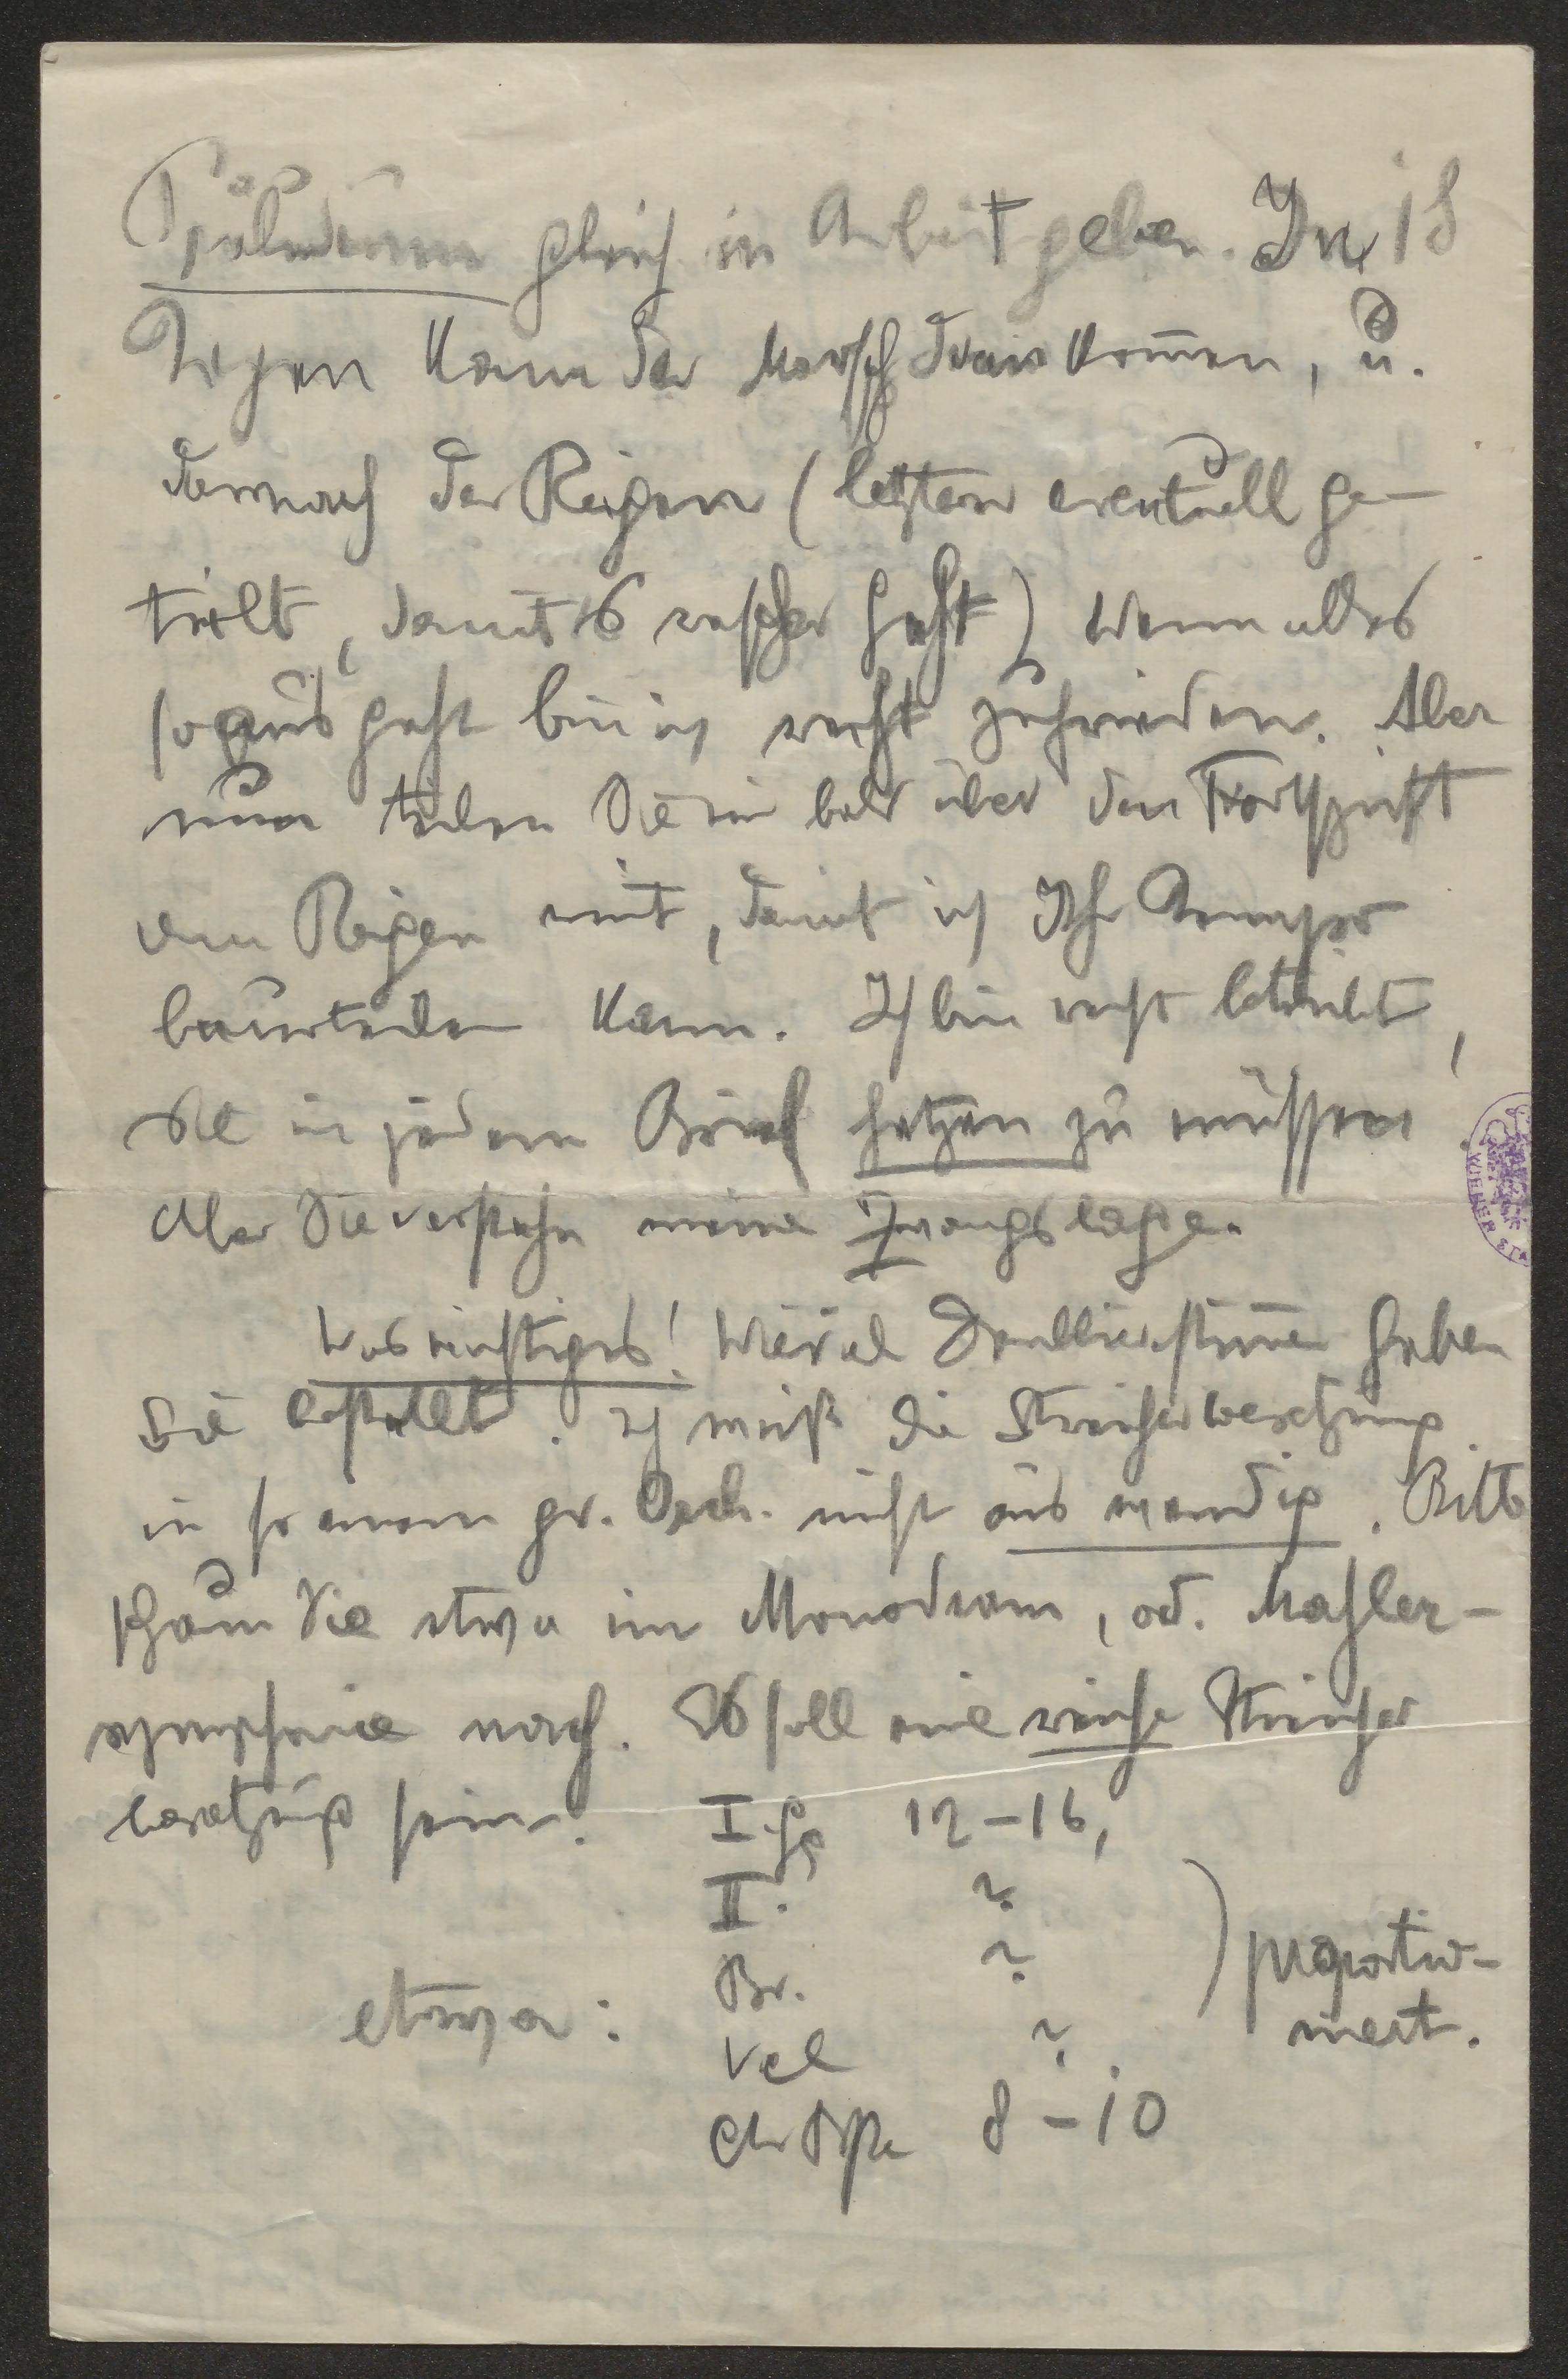 Präludium gleich in Arbeit geben. In 18
Tagen kann der Marsch drankom̄en, u.
darnach der Reigen (letzterer eventuell ge-
teilt, damit es rascher geht) Wenn alles
so aus geht bin ich recht zufrieden. Aber
nun teilen Sie mir bald über den Fortschritt
vom Reigen mit, damit ich Ihr Tempo
beurteilen kann. Ich bin recht betrübt,
Sie in jedem Brief hetzen zu müssen
Aber Sie verstehn meine Zwangslage.
Was wichtiges! Wieviel Doublierstim̄en haben
Sie bestellt. Ich weiß die Streicherbesetzung
in so einem gr. Orch. nicht auswendig. Bitte
schaun Sie etwa im Monodram, od. Mahler-
symphonie nach. Es soll eine reiche Streicher
besetzung sein.
I. Gg 12-16,
II. ?
Br. ?
etwa:
Vcl ?
Ctr Bße 8-10
) proportio-
niert.
WIENER STA